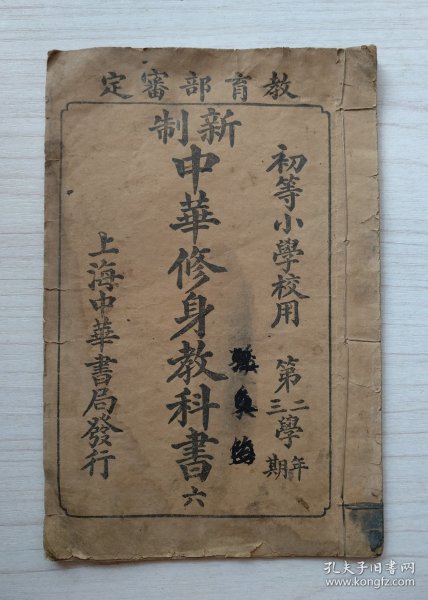 教育部審定
初等小學校用
第二學年
三學期
新制
中華修身教科書 六
上海中華書局發行
孔夫子旧书网
www.kongfz.com